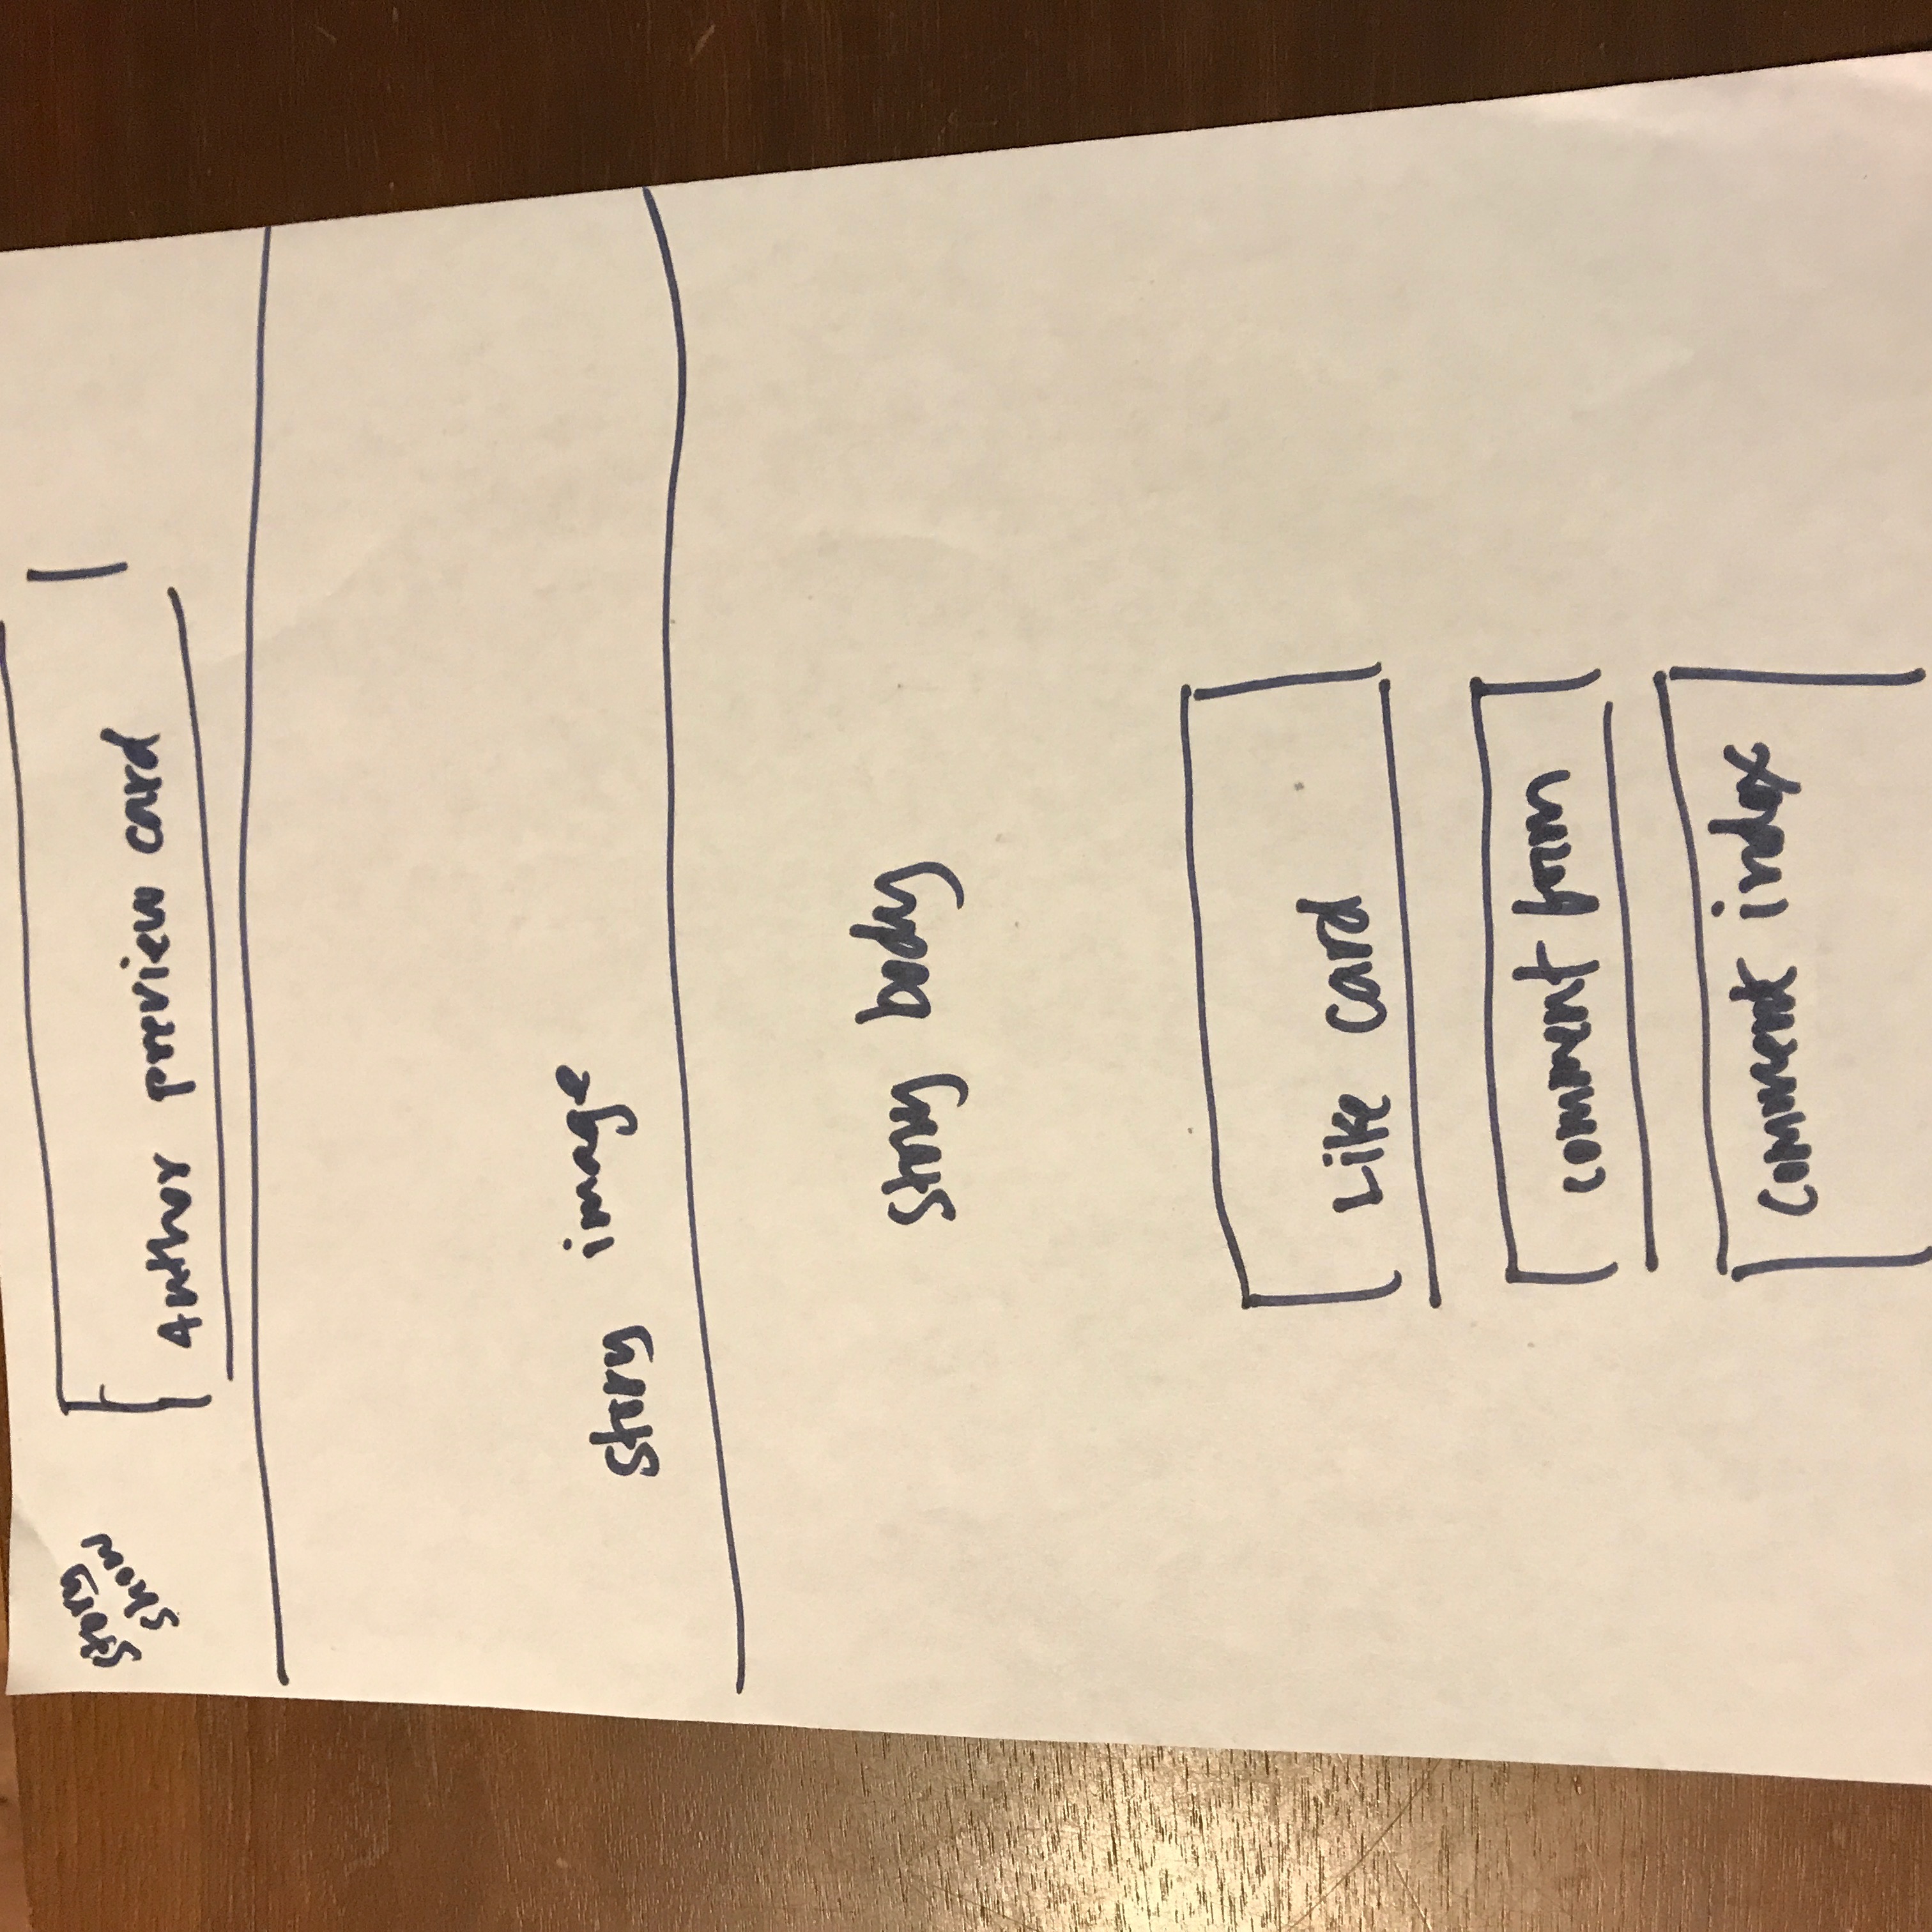 Story
show
Author preview card
story image
Story body
Like card
comment form
Comment index